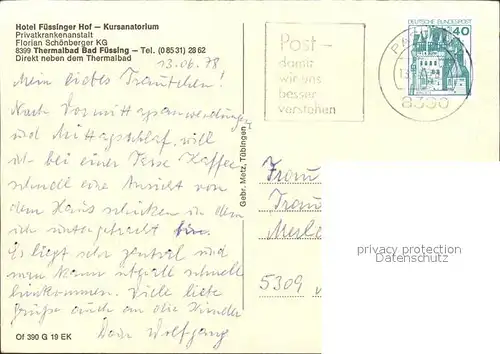 Hotel Füssinger Hof – Kursanatorium
Privatkrankenanstalt
Florian Schönberger KG
8399 Thermalbad Bad Füssing – Tel. (0 85 31) 28 62
Direkt neben dem Thermalbad
13.06.78
Mein liebes Trautchen!
Nach Vormittagsanwendungen
und Mittagsschlaf will
ich bei einer Tasse Kaffee
schnell eine Ansicht von
dem Haus schicken in dem
ich untergebracht bin.
Es liegt sehr zentral und
man kann überall schnell
hinkommen. Viele liebe
Grüße auch an die Kinder
Dein Wolfgang
Of 390 G 19 EK
Gebr. Metz, Tübingen
Post –
damit
wir uns
besser
verstehen
DEUTSCHE BUNDESPOST
40
8390
Frau
5309
privacy protection
Datenschutz